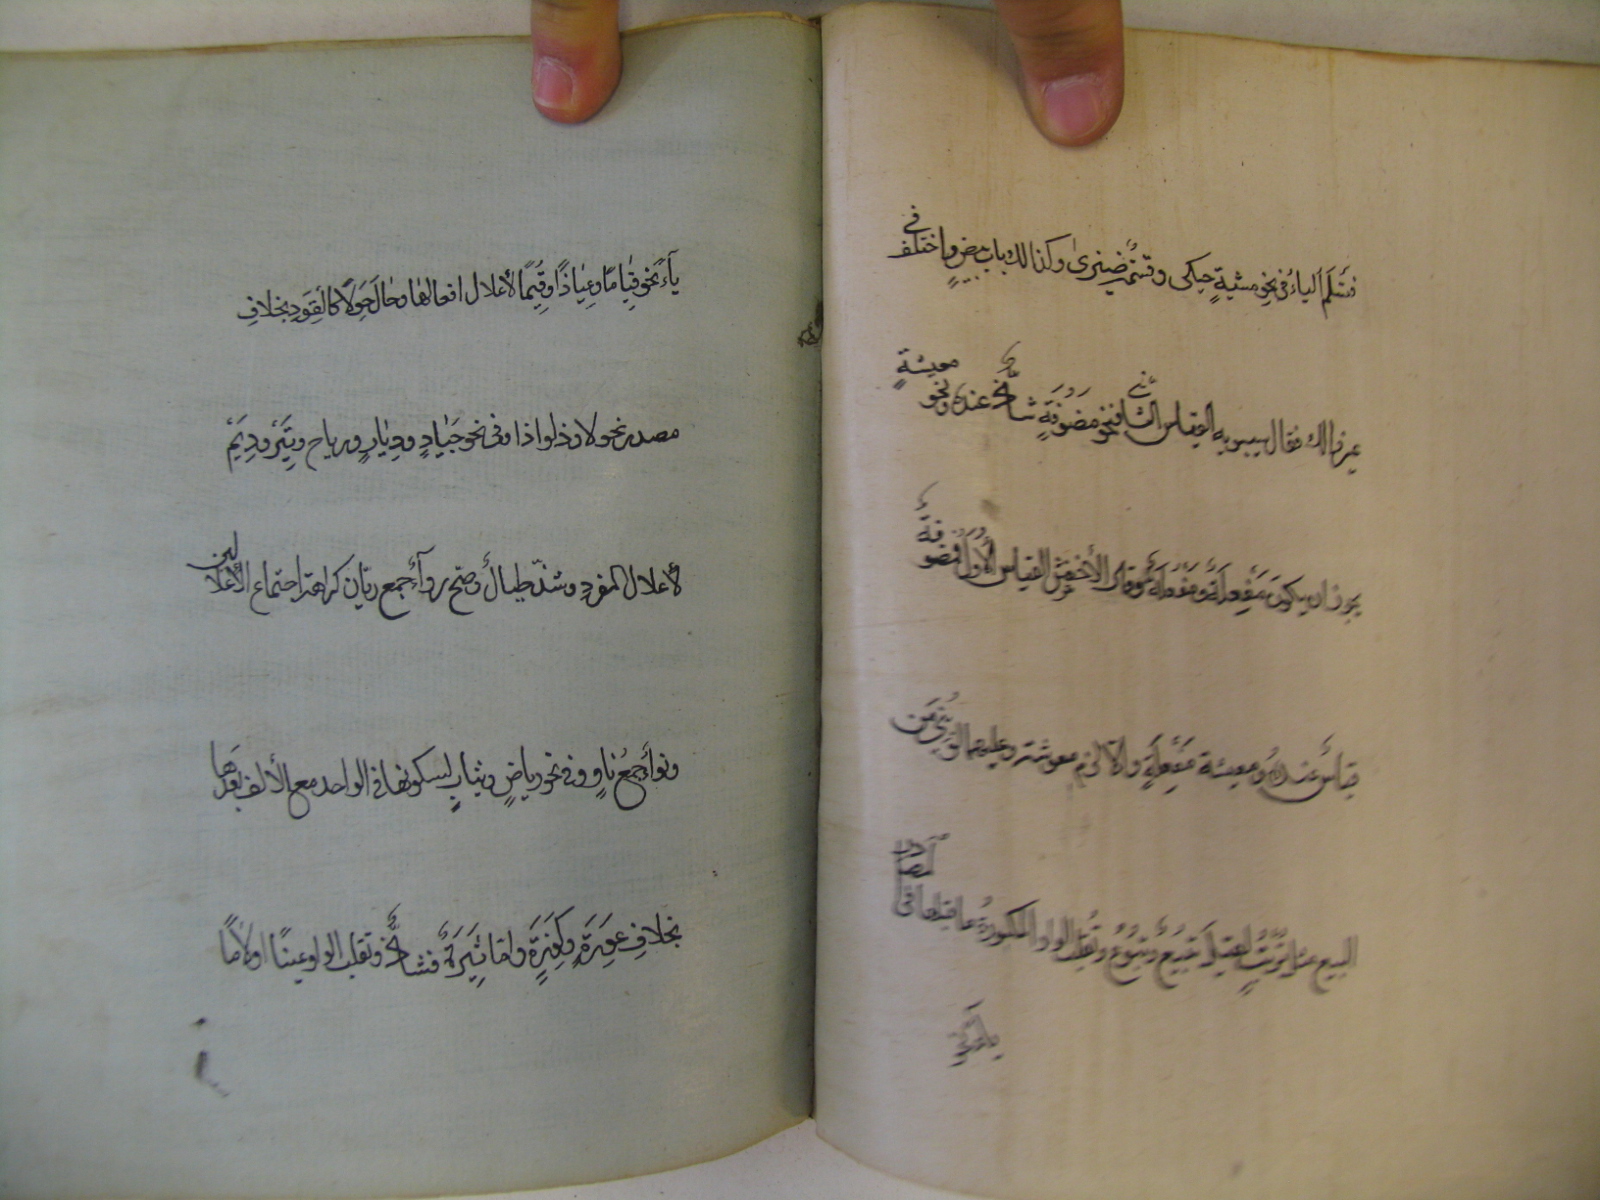 فتسلم الياء في نحو مشية حيكى وقسمة ضيزى وكذلك باب بيض واختلف في
غير ذلك فقال سيبويه القياس الثاني فنحو مضوفة شاذ عنده ونحو معيشة
يجوز ان يكون مفعلة ومفعلة وقال الأخفش القياس الأول فمضوفة
قياس عنده ومعيشة مفعلة والا لزم معوشة وعليهما لو بني من
البيع مثل ترتب لقيل تبيع وتبوع وتقلب الواو المكسورة ما قبلها في المصادر
ياء نحو
ياء نحو قياما وعياذا وقيما لأعلال افعالها وحال حولا كالقود بخلاف
مصدر نحو لاوذ لواذا وفي نحو جياد وديار ورياح وتير وديم
لأعلال المفرد وشذ طيال وصح رواء جمع ريان كراهة اجتماع الأعلالين
ونواء جمع ناو وفي نحو رياض وثياب لسكونها في الواحد مع الألف بعدها
بخلاف عودة وكوزة واما ثيرة فشاذ وتقلب الواو عينا او لاما